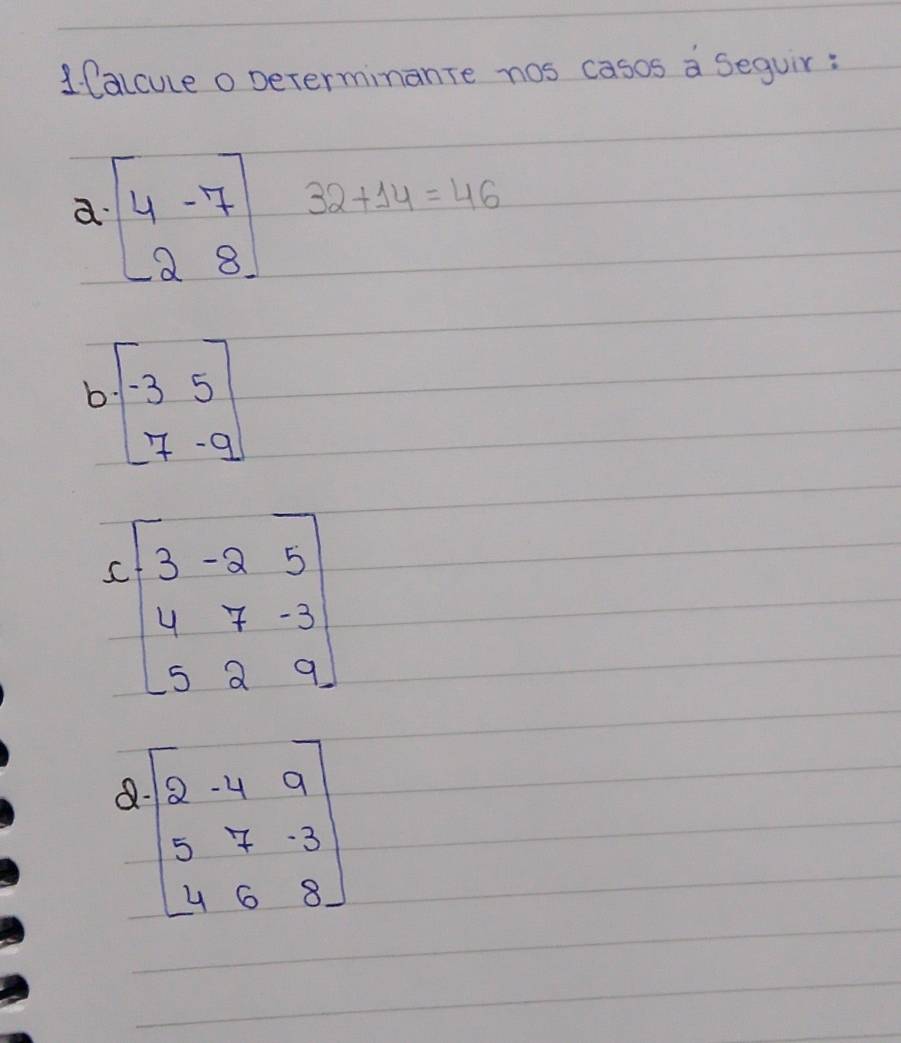 1. Calcule o Determinante nos casos á seguir:
a. [4 -7] 32+14=46
[2 8]
b. [-3 5]
[7 -9]
c. [3 -2 5]
[4 7 -3]
[5 2 9]
d. [2 -4 9]
[5 7 -3]
[4 6 8]